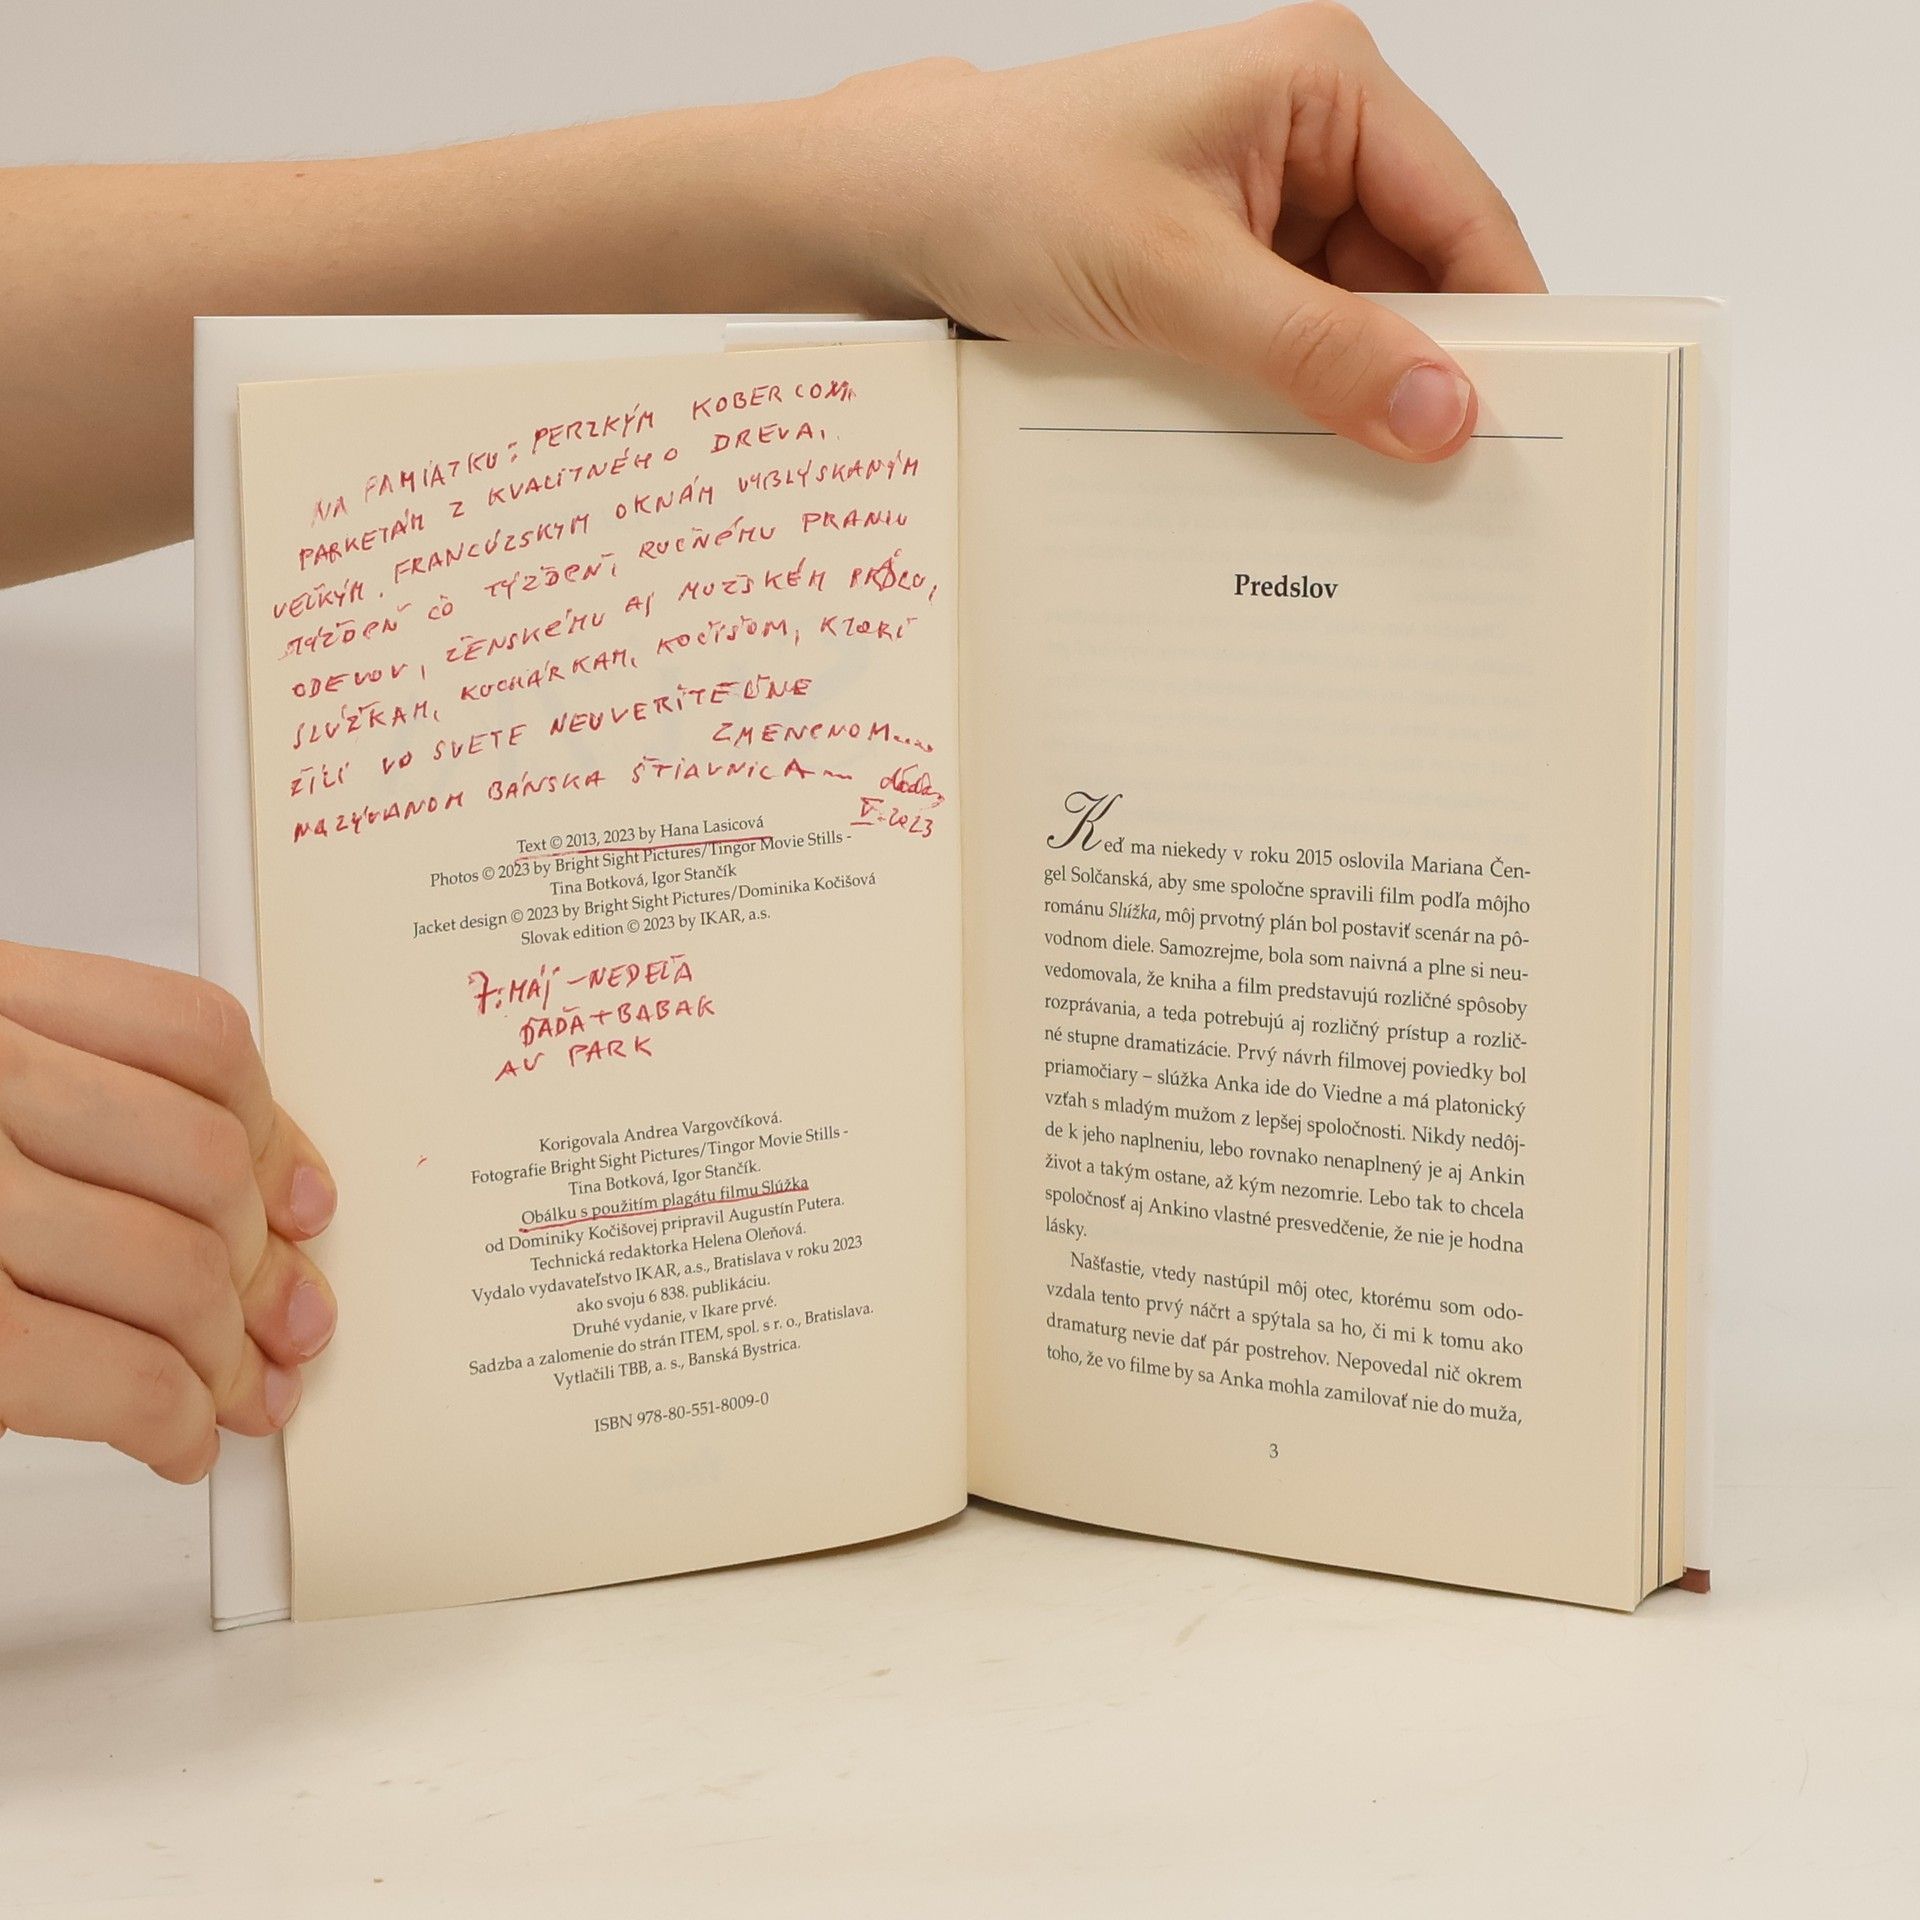 NA PAMIATKU: PERZKÝM KOBERCOM,
PARKETÁM Z KVALITNÉHO DREVA,
VEĽKÝM FRANCÚZSKYM OKNÁM VYBLÝSKANÝM
TÝŽDEŇ ČO TÝŽDEŇ, RUČNÉMU PRANIU
ODEVOV, ŽENSKÉMU AJ MUŽSKÉM PRÁDLU,
SLÚŽKAM, KUCHÁRKAM, KOČIŠOM, KTORÍ
ŽILI VO SVETE NEUVERITEĽNE
ZMENENOM....
NAZÝVANOM BÁNSKA ŠTIAVNICA
V. 2023
Text © 2013, 2023 by Hana Lasicová
Photos © 2023 by Bright Sight Pictures/Tingor Movie Stills -
Tina Botková, Igor Stančík
Jacket design © 2023 by Bright Sight Pictures/Dominika Kočišová
Slovak edition © 2023 by IKAR, a.s.
7. MÁJ - NEDEĽA
ĎAĎA + BABAK
AU PARK
Korigovala Andrea Vargovčíková.
Fotografie Bright Sight Pictures/Tingor Movie Stills -
Tina Botková, Igor Stančík.
Obálku s použitím plagátu filmu Slúžka
od Dominiky Kočišovej pripravil Augustín Putera.
Technická redaktorka Helena Oleňová.
Vydalo vydavateľstvo IKAR, a.s., Bratislava v roku 2023
ako svoju 6 838. publikáciu.
Druhé vydanie, v Ikare prvé.
Sadzba a zalomenie do strán ITEM, spol. s r. o., Bratislava.
Vytlačili TBB, a. s., Banská Bystrica.
ISBN 978-80-551-8009-0
Predslov
Keď ma niekedy v roku 2015 oslovila Mariana Čen-
gel Solčanská, aby sme spoločne spravili film podľa môjho
románu Slúžka, môj prvotný plán bol postaviť scenár na pô-
vodnom diele. Samozrejme, bola som naivná a plne si neu-
vedomovala, že kniha a film predstavujú rozličné spôsoby
rozprávania, a teda potrebujú aj rozličný prístup a rozlič-
né stupne dramatizácie. Prvý návrh filmovej poviedky bol
priamočiary – slúžka Anka ide do Viedne a má platonický
vzťah s mladým mužom z lepšej spoločnosti. Nikdy nedôj-
de k jeho naplneniu, lebo rovnako nenaplnený je aj Ankin
život a takým ostane, až kým nezomrie. Lebo tak to chcela
spoločnosť aj Ankino vlastné presvedčenie, že nie je hodna
lásky.
Našťastie, vtedy nastúpil môj otec, ktorému som odo-
vzdala tento prvý náčrt a spýtala sa ho, či mi k tomu ako
dramaturg nevie dať pár postrehov. Nepovedal nič okrem
toho, že vo filme by sa Anka mohla zamilovať nie do muža,
3